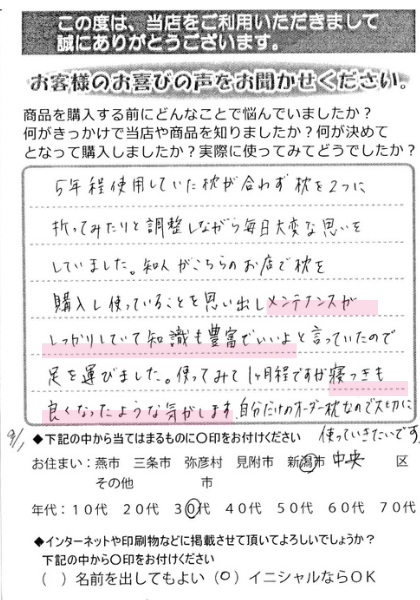 この度は、当店をご利用いただきまして
誠にありがとうございます。
お客様のお喜びの声をお聞かせください。
商品を購入する前にどんなことで悩んでいましたか？
何がきっかけで当店や商品を知りましたか？何が決めて
となって購入しましたか？実際に使ってみてどうでしたか？
5年程使用していた枕が合わず枕を2つに
折ってみたりと調整しながら毎日大変な思いを
していました。知人がこちらのお店で枕を
購入し使っていることを思い出しメンテナンスが
しっかりしていて知識も豊富でいいよと言っていたので
足を運びました。使ってみて1ヶ月程ですが寝つきも
良くなったような気がします自分だけのオーダー枕なので大切に
使っていきたいです
9/1
◆下記の中から当てはまるものに〇印をお付けください
お住まい：燕市 三条市 弥彦村 見附市 新潟市 中央 区
その他 市
年代：10代 20代 30代 40代 50代 60代 70代
◆インターネットや印刷物などに掲載させて頂いてよろしいでしょうか？
下記の中から〇印をお付けください
（ ）名前を出してもよい（〇）イニシャルならOK